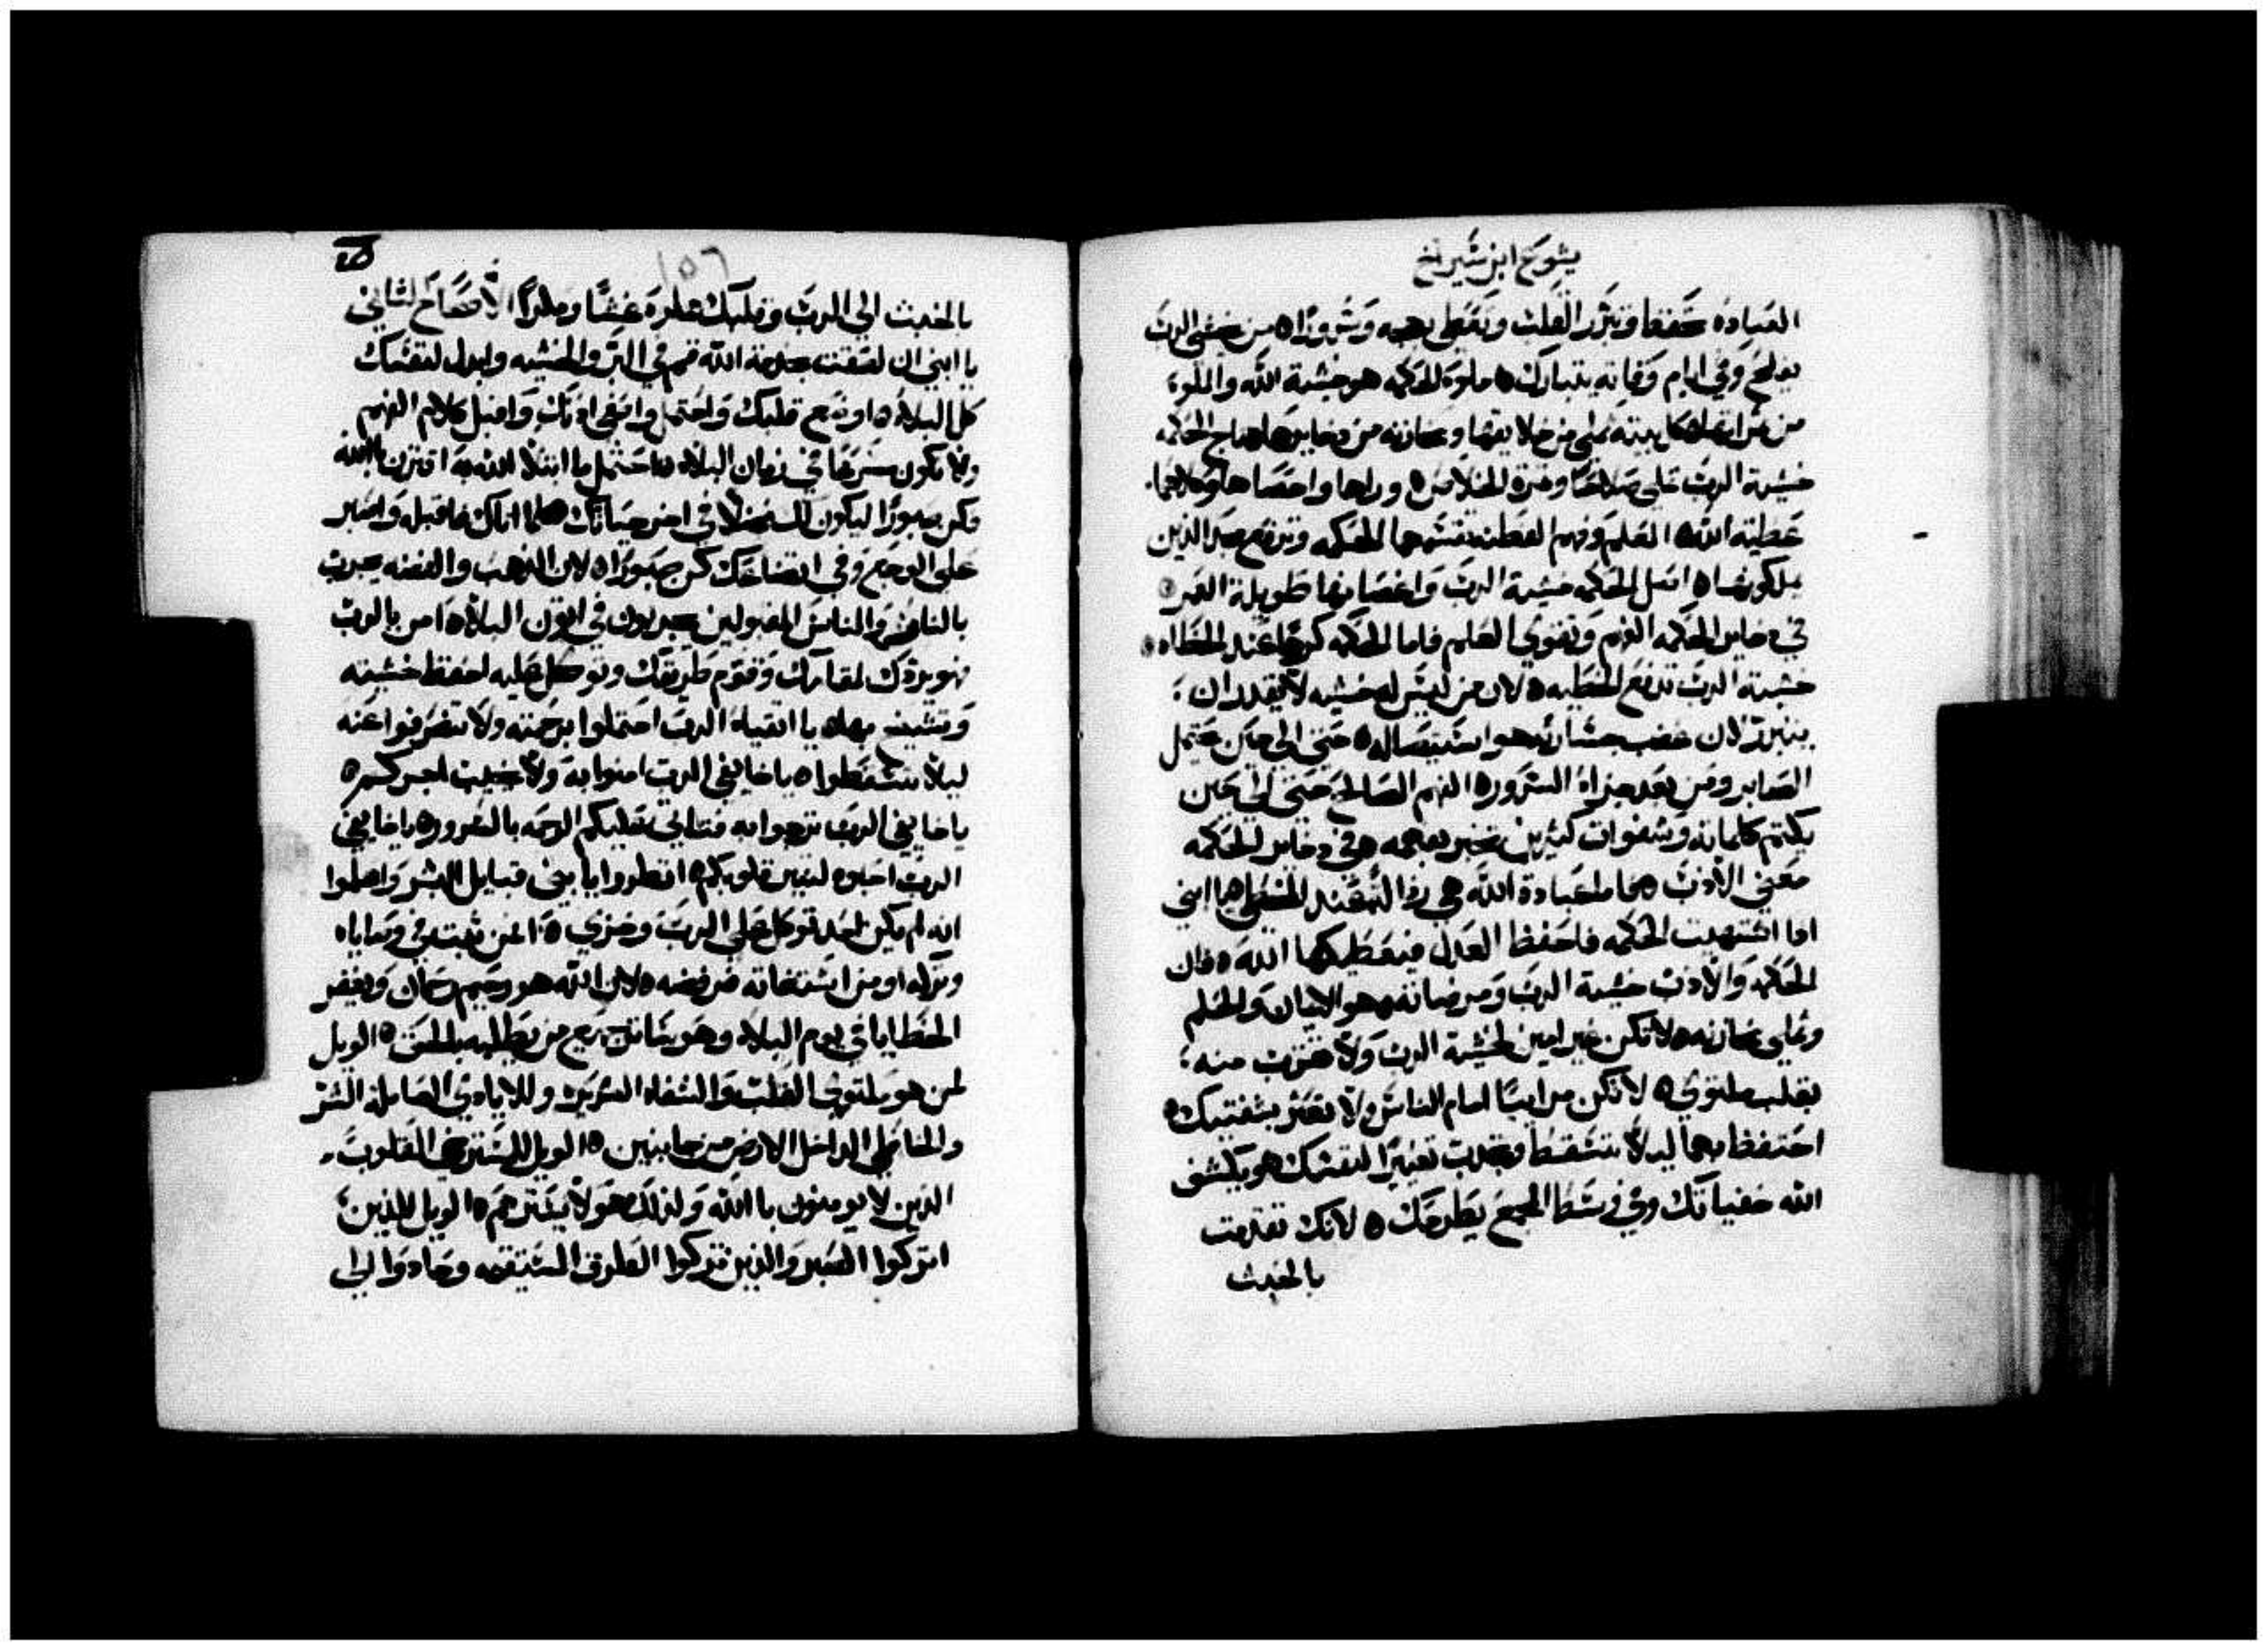 يشوع ابن شيراخ
العباده تحفظ وتبرر القلب وتعطي بهجه وسروراه من يخشى الرب
يفلح وفي ايام وفاته يتبارك ه ملوة الحكمه هو خشية الله والملوة
من ثمراتها ه كل بيته تملي من خلايقها ومخازنه من دخايرها ه تاج الحكمه
خشية الرب تملي سلامًا وثمرة الخلاص ه وراها واحصاها وكلاهما
عطية الله ه العلم وفهم الفطنه تقسمها الحكمه وترفع مجد الذين
يملكونها ه اصل الحكمه خشية الرب واغصانها طويلة العمر ه
في دخاير الحكمه الفهم وتقوى العلم فاما الحكمه كرجًا عند الخطاه ه
خشية الرب تدفع الخطيه ه لان من ليس له خشيه لا يقدر ان
يتبرر لان غضب جسارته هو استيصاله ه حتى الي حين يحتمل
الصابر ومن بعد جزاه السرور ه الفهم الصالح حتى الي حين
يكتم كلماته وشفوات كثيرين تخبر بفهمه ه في دخاير الحكمه
معني الادب ه فاما عبادة الله هي رذاله عند الخطاه يا ابني
اذا اشتهيت الحكمه فاحفظ العدل فيعطيكها الله ه فان
الحكمه والادب خشية الرب ومرضاته هو الايمان والحلم
وتملي مخازنه ه لا تكن غير امين لخشية الرب ولا تقترب منه
بقلب ملتوي ه لا تكن مراييًا امام الناس ولا تعثر بشفتيك ه
احتفظ بهما ليلا تتسقط وتجلب تعييرًا لنفسك هو يكشف
الله خفياتك وفي وسط المجمع يطرحك ه لانك تقدمت
بالخبث
١٥٦
بالخبث الي الرب وقلبك مملوة غشًا ومكرًا الاصحاح الثاني
يا ابني ان لصقت بخدمة الله قم في البر والخشيه وابدل لنفسك
كل البلاه ه اوضع قلبك واحتمل واصغي اذنك واقبل كلام الفهم
ولا تكون سريعًا في زمان البلاه ه احتمل ما ابتلا الله به اقترن بالله
وكن صبورًا ليكون لك فضلًا في اخر حياتك ه كلما اتاك فاقبله واصبر
على الوجع وفي اتضاعك كن صبورًا ه لان الذهب والفضه يجرب
بالنار والناس المقبولين يجربون في اتون البلاه ه امن بالرب
فهو يردك لمقامك وقوم طريقك وتوكل عليه احفظ خشيته
وتشيخ بها ه يا اتقياء الرب احتملوا برحمته ولا تنصرفوا عنه
ليلا تتسقطوا ه يا خايفي الرب امنوا به ولا يخيب اجركم ه
يا خايفي الرب ترجوا به فتاتي عليكم الرحمه بالسرور ه يا خايفي
الرب احبوه لتنير قلوبكم ه انظروا يا بني قبايل البشر واعلموا
انه لم يكن احد توكل على الرب وخزي ه او من ثبت في وصاياه
وتركه او من استغاثه فرفضه ه لان الله هو رحيم رحمان ويغفر
الخطايا في يوم البلاه وهو ساتر جميع من يطلبه بالحق ه الويل
لمن هو ملتوي القلب والشفاه الشريره وللايادي العامله الشر
والخاطي الداخل الارض من جانبين ه الويل للمسترخي القلوب
الذين لا يومنون بالله ولذلك هو لا يسترهم ه الويل للذين
اتركوا الصبر والذين تركوا الطرق المستقيمه وحادوا الي